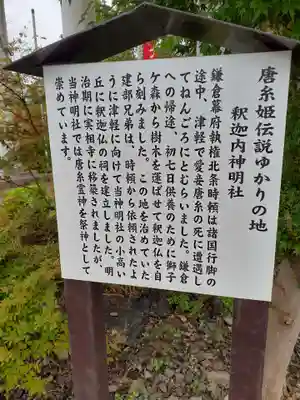 唐糸姫伝説ゆかりの地
釈迦内神明社
鎌倉幕府執権北条時頼は諸国行脚の
途中、津軽で愛妾唐糸の死に遭遇し
てねんごろにとむらいました。鎌倉
への帰途、初七日供養のために獅子
ケ森から樹木を運ばせて釈迦仏を自
ら刻みました。この地を治めていた
建部兄弟は、時頼から依頼されたよ
うに津軽に向けて当神明社の小高い
丘に釈迦仏の祠を建立しました。明
治期に実相寺に移築されましたが、
当神明社では唐糸霊神を祭神として
崇めています。